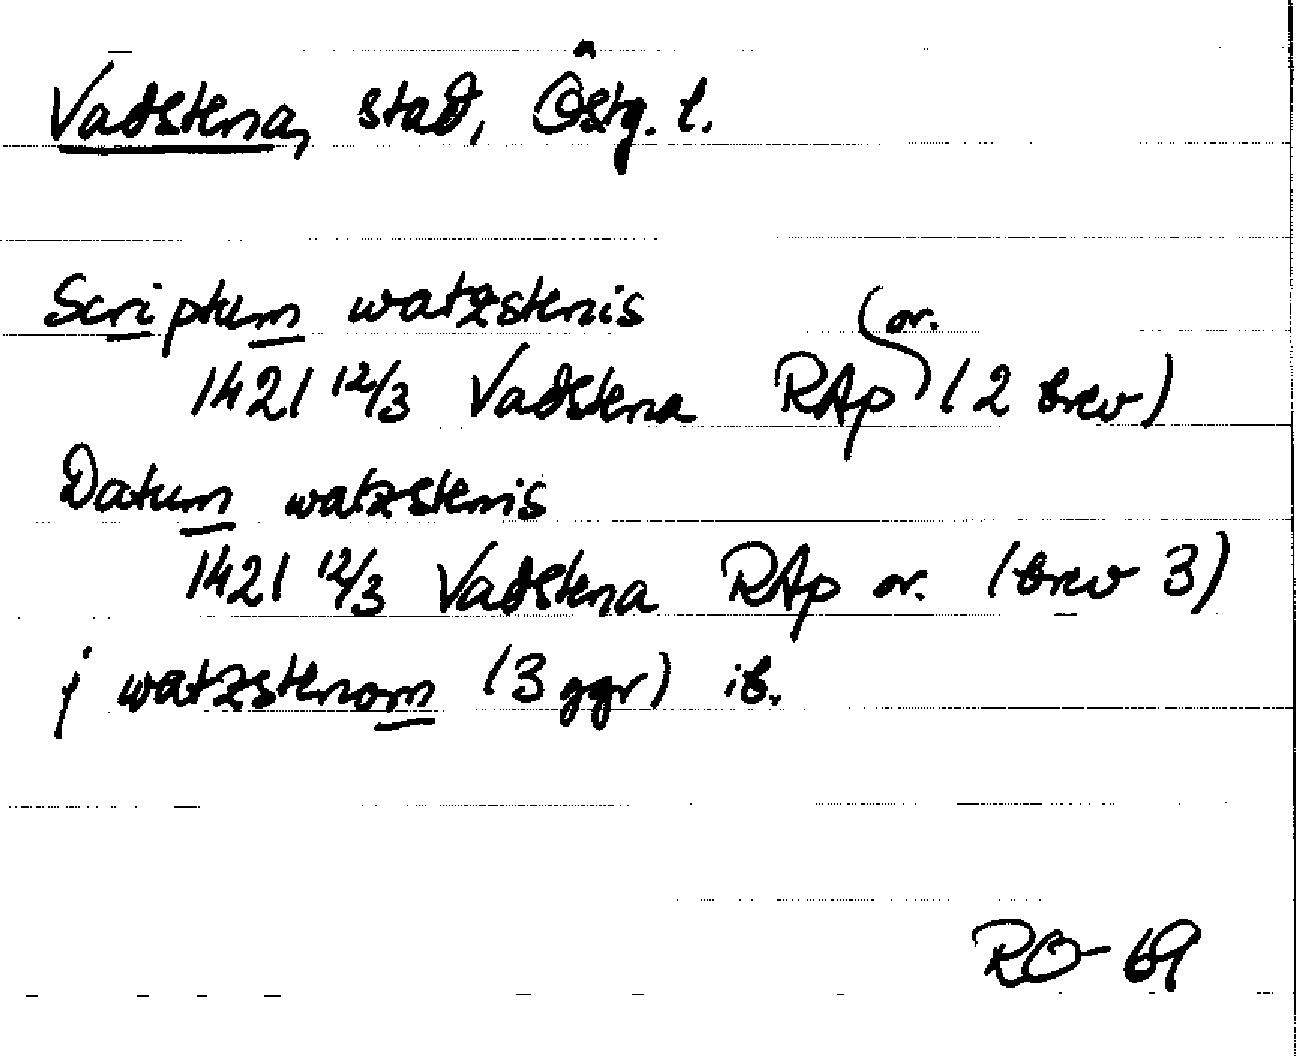 Vadstena, stad, Östg. l.
Scriptum watzstenis
1421 12/3 Vadstena RAp or. (2 brev)
Datum watzstenis
1421 12/3 Vadstena RAp or. (brev 3)
j watzstenom (3 ggr) ib.
RO-69